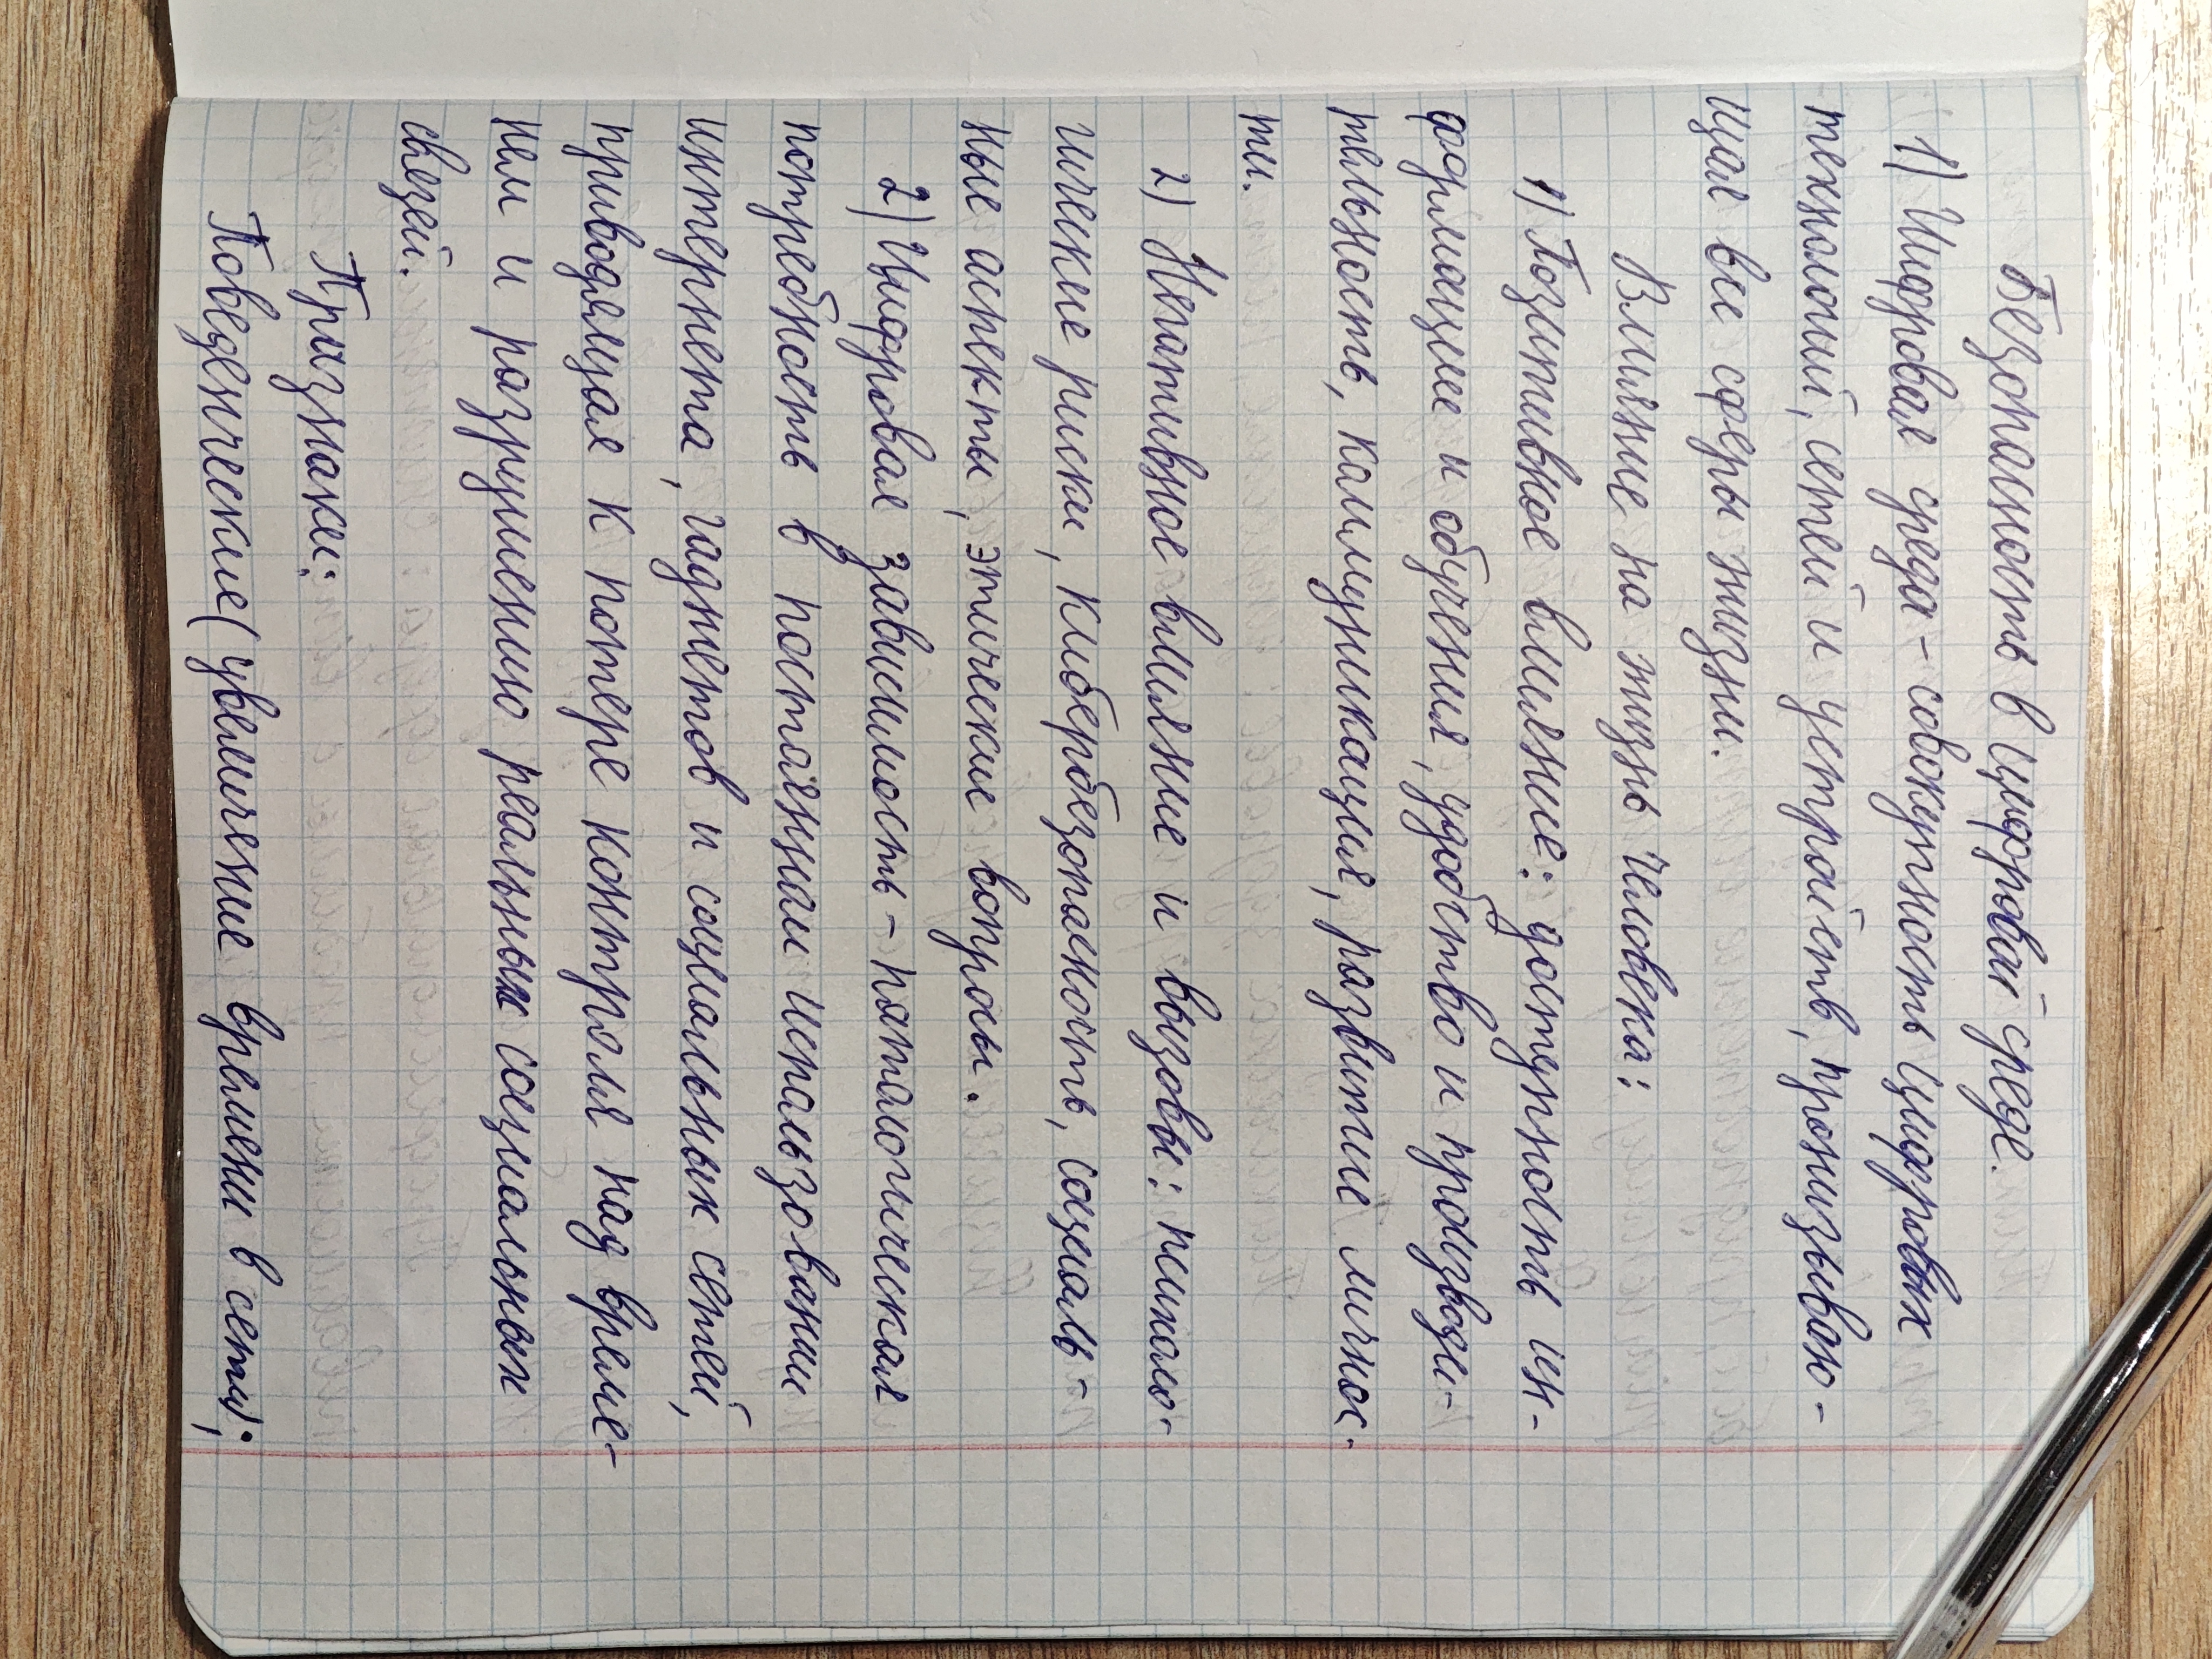 Безопасность в цифровой среде.
1) Цифровая среда - совокупность цифровых
технологий, сетей и устройств, пронизываю-
щая все сферы жизни.
Влияние на жизнь человека:
1) Позитивное влияние: доступность ин-
формации и обучения, удобство и производи-
тельность, коммуникация, развитие личнос-
ти.
2) Негативное влияние и вызовы: психоло-
гические риски, кибербезопасность, социаль-
ные аспекты, этические вопросы.
2) Цифровая зависимость - патологическая
потребность в постоянном использовании
интернета, гаджетов и социальных сетей,
приводящая к потере контроля над време-
нем и разрушению реальных социальных
связей.
Признаки:
Поведенческие (увеличение времени в сети;